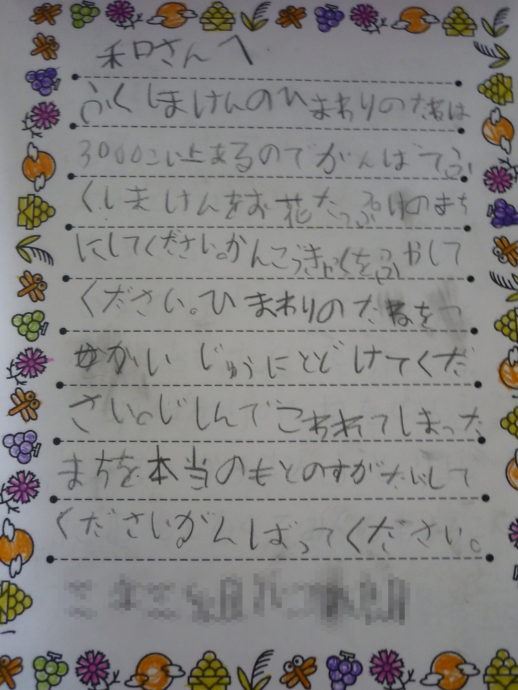 和口さんへ
ふくしまけんのひまわりのたねは
3000こい上あるのでがんばてふ
くしまけんをお花たっぷりのまち
にしてください。かんこうきゃくをふやして
ください。ひまわりのたねをつ
せかいじゅうにとどけてくだ
さい。じしんでこわれてしまった
まちを本当のもとのすがたにして
くださいがんばってください。